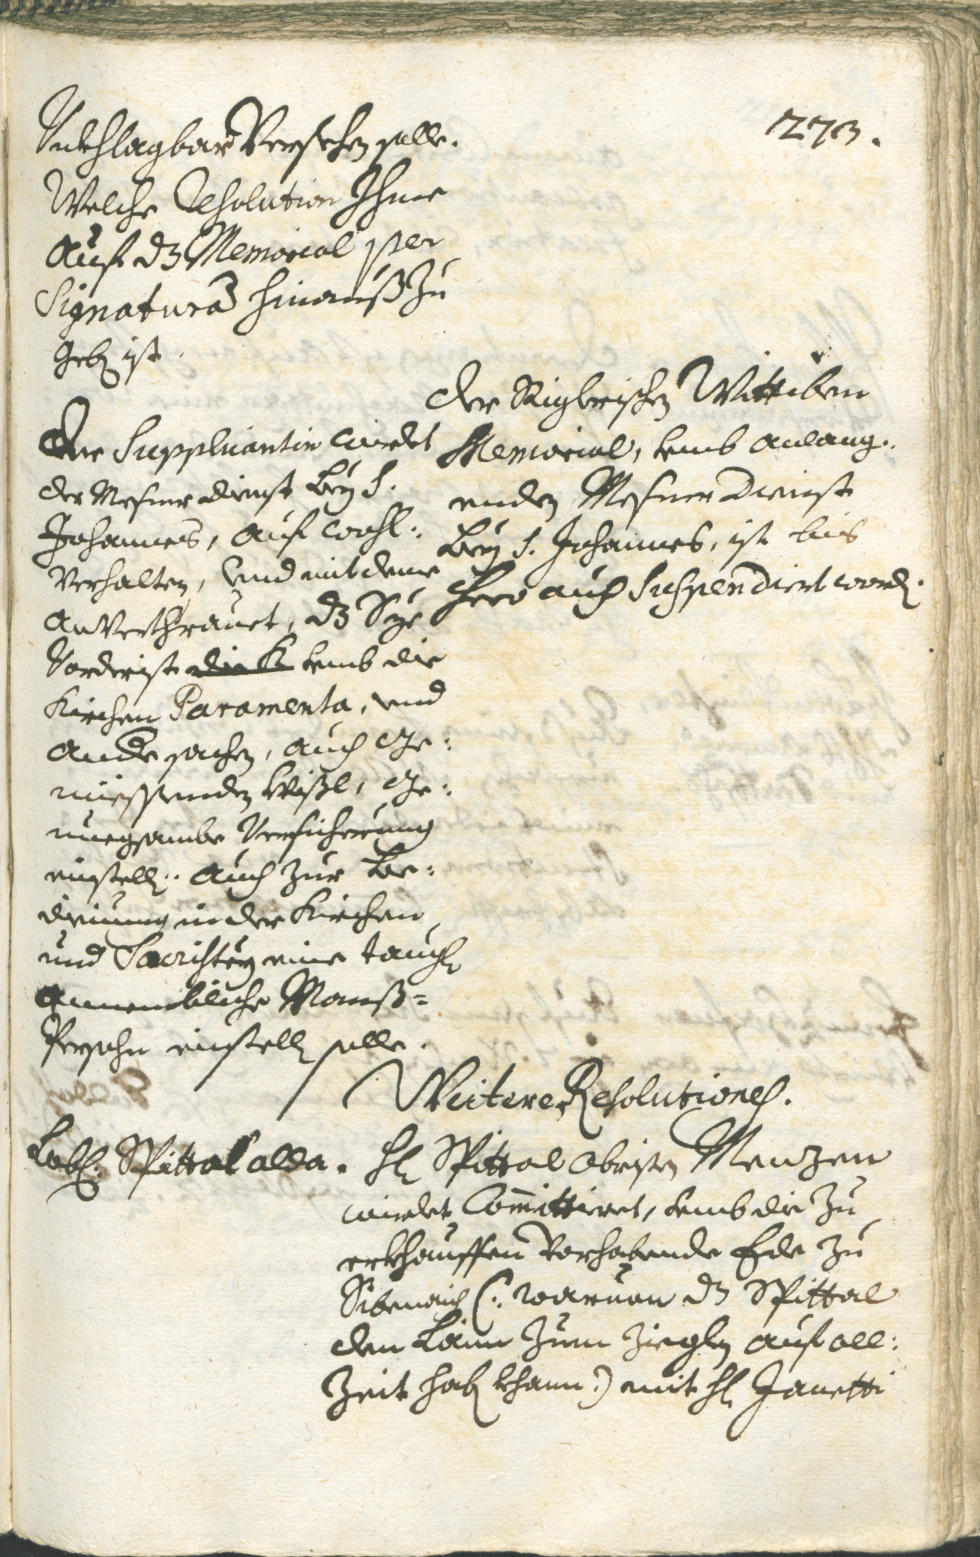 273.
Nuehlagbar Versehen solle.
Welche Resolution Ihme
Auf dz Memorial per
Signatură hinauß zu
geben ist.
Der Supplicantin wirdet
der Mesner dienst bey S.
Johannes, auf wohl:
verhalten, und mit deme
anverthrauet, dz Sye
Vorderist die K umb die
Kirchen Paramenta, und
andre sachen, auch Ge:
niessenden Wißl, Ge:
nuegsambe Versicherung
einstelle. Auch zur Be:
dienung in der Kirchen
und Sacristey eine tauch
annembliche Manß=
Persohn einstelle solle.
Der Riglerischen Wittiben
Memorial, umb anlang:
enden Mesner Dienst
bey S. Johannes, ist bis
hero auch Suspendiert word.
Weitere Resolutiones.
Lobl. Spittal alda.
H Spittal Obristen Menzen
wirdet Committiret, umb die zu
erkhauffen vorhabende Ede zu
Sibenaich (: warvon dz Spittal
den Laim zum Zieglen auf all:
Zeit haben khann :) mit H Janetti